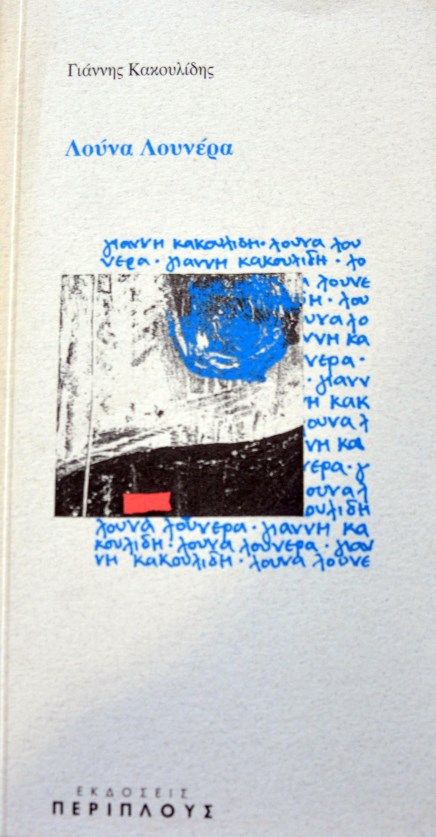 Γιάννης Κακουλίδης
Λούνα Λουνέρα
γιαννη κακουλιδη · λουνα λου
νερα · γιαννη κακουλιδη · λο
α λουνε
η · λου
ουνα λο
ννη κα
νερα ·
· γιανν
η κακ
λουνα λ
ννη κα
νερα · γ
λουνα λ
ουλιδη
λουνα λουνερα · γιαννη κα
κουλιδη · λουνα λουνερα · γιαν
νη κακουλιδη · λουνα λουνε
ΕΚΔΟΣΕΙΣ
ΠΕΡΙΠΛΟΥΣ